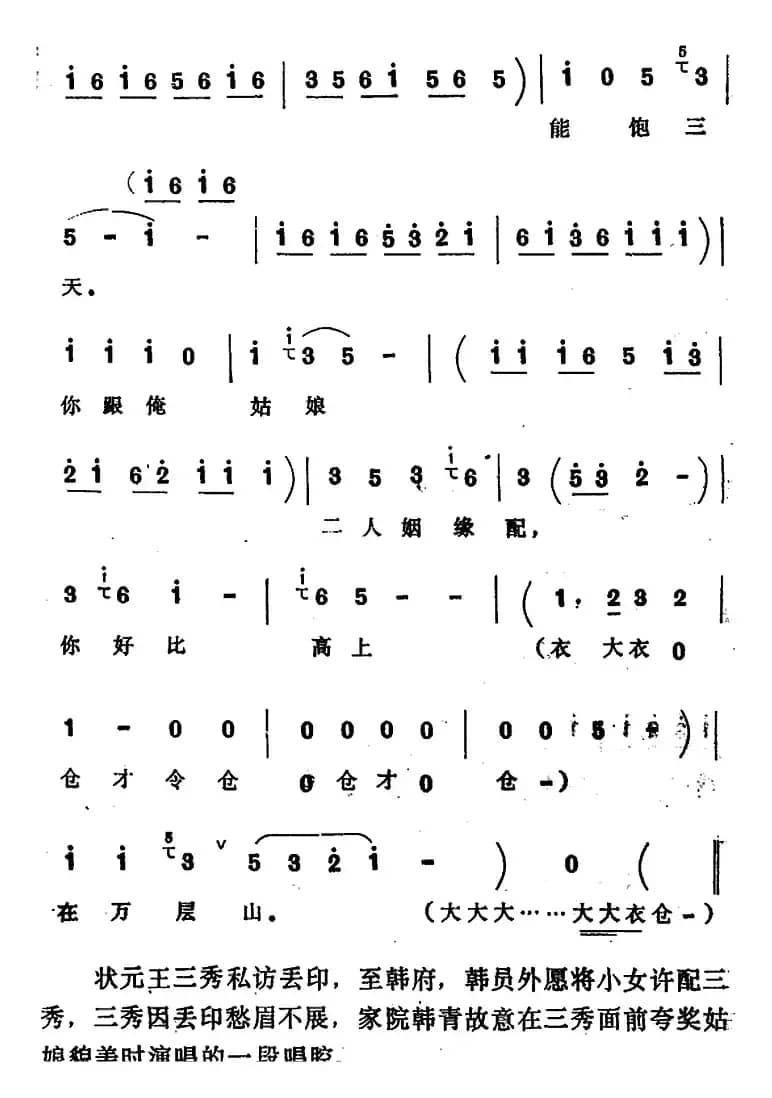 i 6 i 6 5 6 i 6 | 3 5 6 i 5 6 5 ) | i 0 5 5 3 |
能 饱 三
( i 6 i 6
5 - i - | i 6 i 6 5 3 2 i | 6 i 3 6 i i i ) |
天。
i i i 0 | i i 3 5 - | ( i i i 6 5 i 3 |
你 跟 俺 姑 娘
2 i 6 2 i i i ) | 3 5 3 i 6 | 3 ( 5 3 2 - ) |
二 人 姻 缘 配,
3 i 6 i - | i 6 5 - - | ( 1, 2 3 2 |
你 好 比 高 上 (衣 大衣 0
1 - 0 0 | 0 0 0 0 | 0 0 5 - ) |
仓 才 令 仓 0 仓 才 0 仓 -)
i i 5 3 ∨ 5 3 2 i - ) 0 ( ‖
在 万 层 山。 (大大大……大大衣仓 -)
状元王三秀私访丢印, 至韩府, 韩员外愿将小女许配三
秀, 三秀因丢印愁眉不展, 家院韩青故意在三秀面前夸奖姑
娘貌美时演唱的一段唱腔